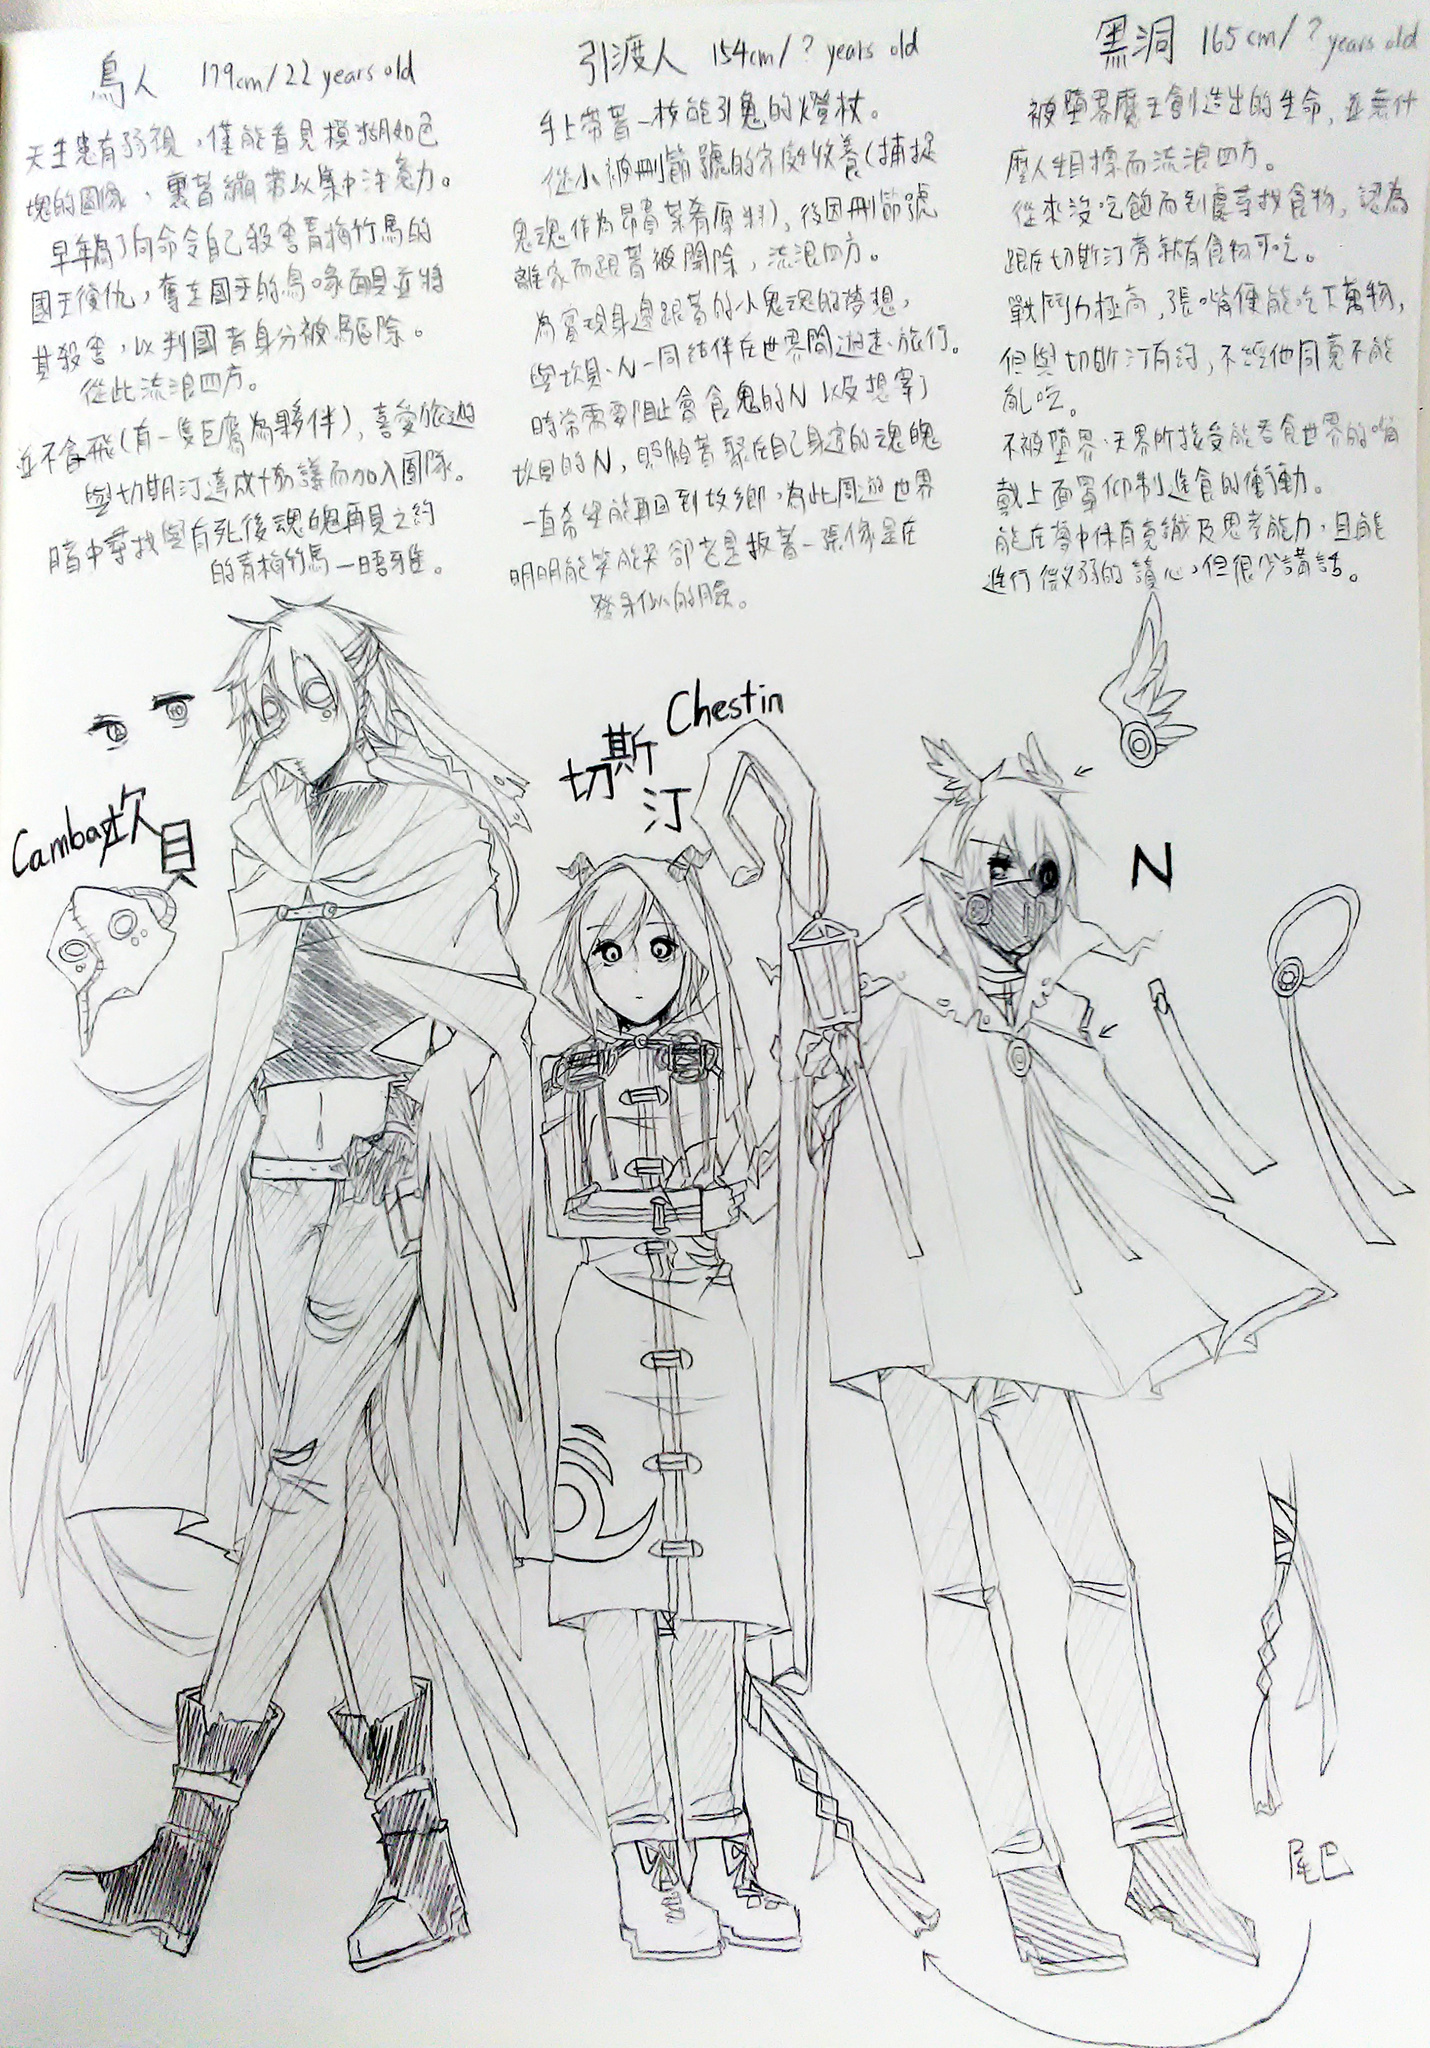 鳥人 179cm/22 years old
天生患有弱視，僅能看見模糊如色
塊的圖像，裹著繃帶以集中注意力。
早年為了向命令自己殺害青梅竹馬的
國王復仇，奪走國王的鳥喙面具並將
其殺害，以判國者身分被驅除。
從此流浪四方。
並不會飛(有一隻巨鷹為夥伴)，喜愛旅遊
與切斯汀達成協議而加入團隊。
暗中尋找與有死後魂魄再見之約
的青梅竹馬—晤雅。
引渡人 154cm/? years old
手上帶著一枝能引鬼的燈杖。
從小被刪節號的家庭收養(捕捉
鬼魂作為昂貴菜肴原料)，後因刪節號
離家而跟著被開除，流浪四方。
為實現身邊跟著的小鬼魂的夢想，
與坎貝、N一同結伴在世界間遊走、旅行。
時常需要阻止會食鬼的N以及想宰了
坎貝的N，照顧著聚在自己身邊的魂魄
一直希望能再回到故鄉，為此周遊世界
明明能笑能哭卻老是板著一張像是在
發呆似的臉。
黑洞 165cm/? years old
被墮界魔王創造出的生命，並無什
麼人生目標而流浪四方。
從來沒吃飽而到處尋找食物，認為
跟在切斯汀旁就有食物可吃。
戰鬥力極高，張嘴便能吃下萬物，
但與切斯汀有約，不經他同意不能
亂吃。
不被墮界、天界所接受能吞食世界的嘴
戴上面罩抑制進食的衝動。
能在夢中保有意識及思考能力，且能
進行微弱的讀心，但很少講話。
Cambay坎貝
切斯汀 Chestin
N
尾巴